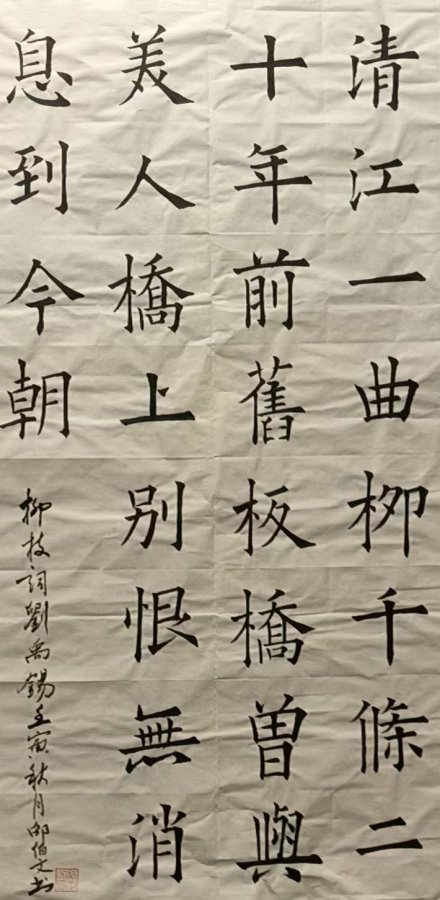 清江一曲柳千條二
十年前舊板橋曾與
美人橋上别恨無消
息到今朝
柳枝詞劉禹錫壬寅秋月邵伯文书